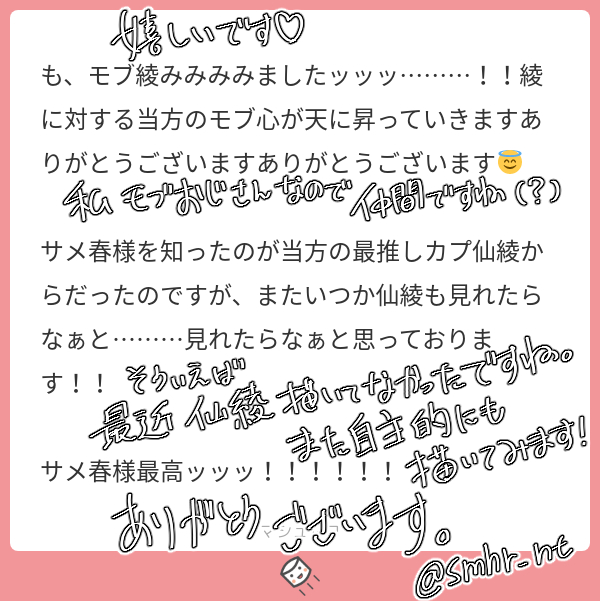 嬉しいです♡
も、モブ綾みみみみましたッッッ………！！綾
に対する当方のモブ心が天に昇っていきますあ
りがとうございますありがとうございます😇
私モブおじさんなので仲間ですね(?)
サメ春様を知ったのが当方の最推しカプ仙綾か
らだったのですが、またいつか仙綾も見れたら
なぁと………見れたらなぁと思っておりま
す！！
そういえば
最近仙綾描いてなかったですね。
また自主的にも
描いてみます!
サメ春様最高ッッッ！！！！！！
ありがとうございます。
@smhr_nt